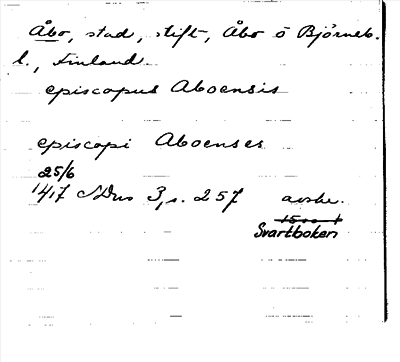 Åbo, stad, stift, Åbo o Björneb.
l., Finland
episcopus Aboensis
episcopi Aboenses
25/6
1417 SDns 3, s. 257 avskr.
Svartboken